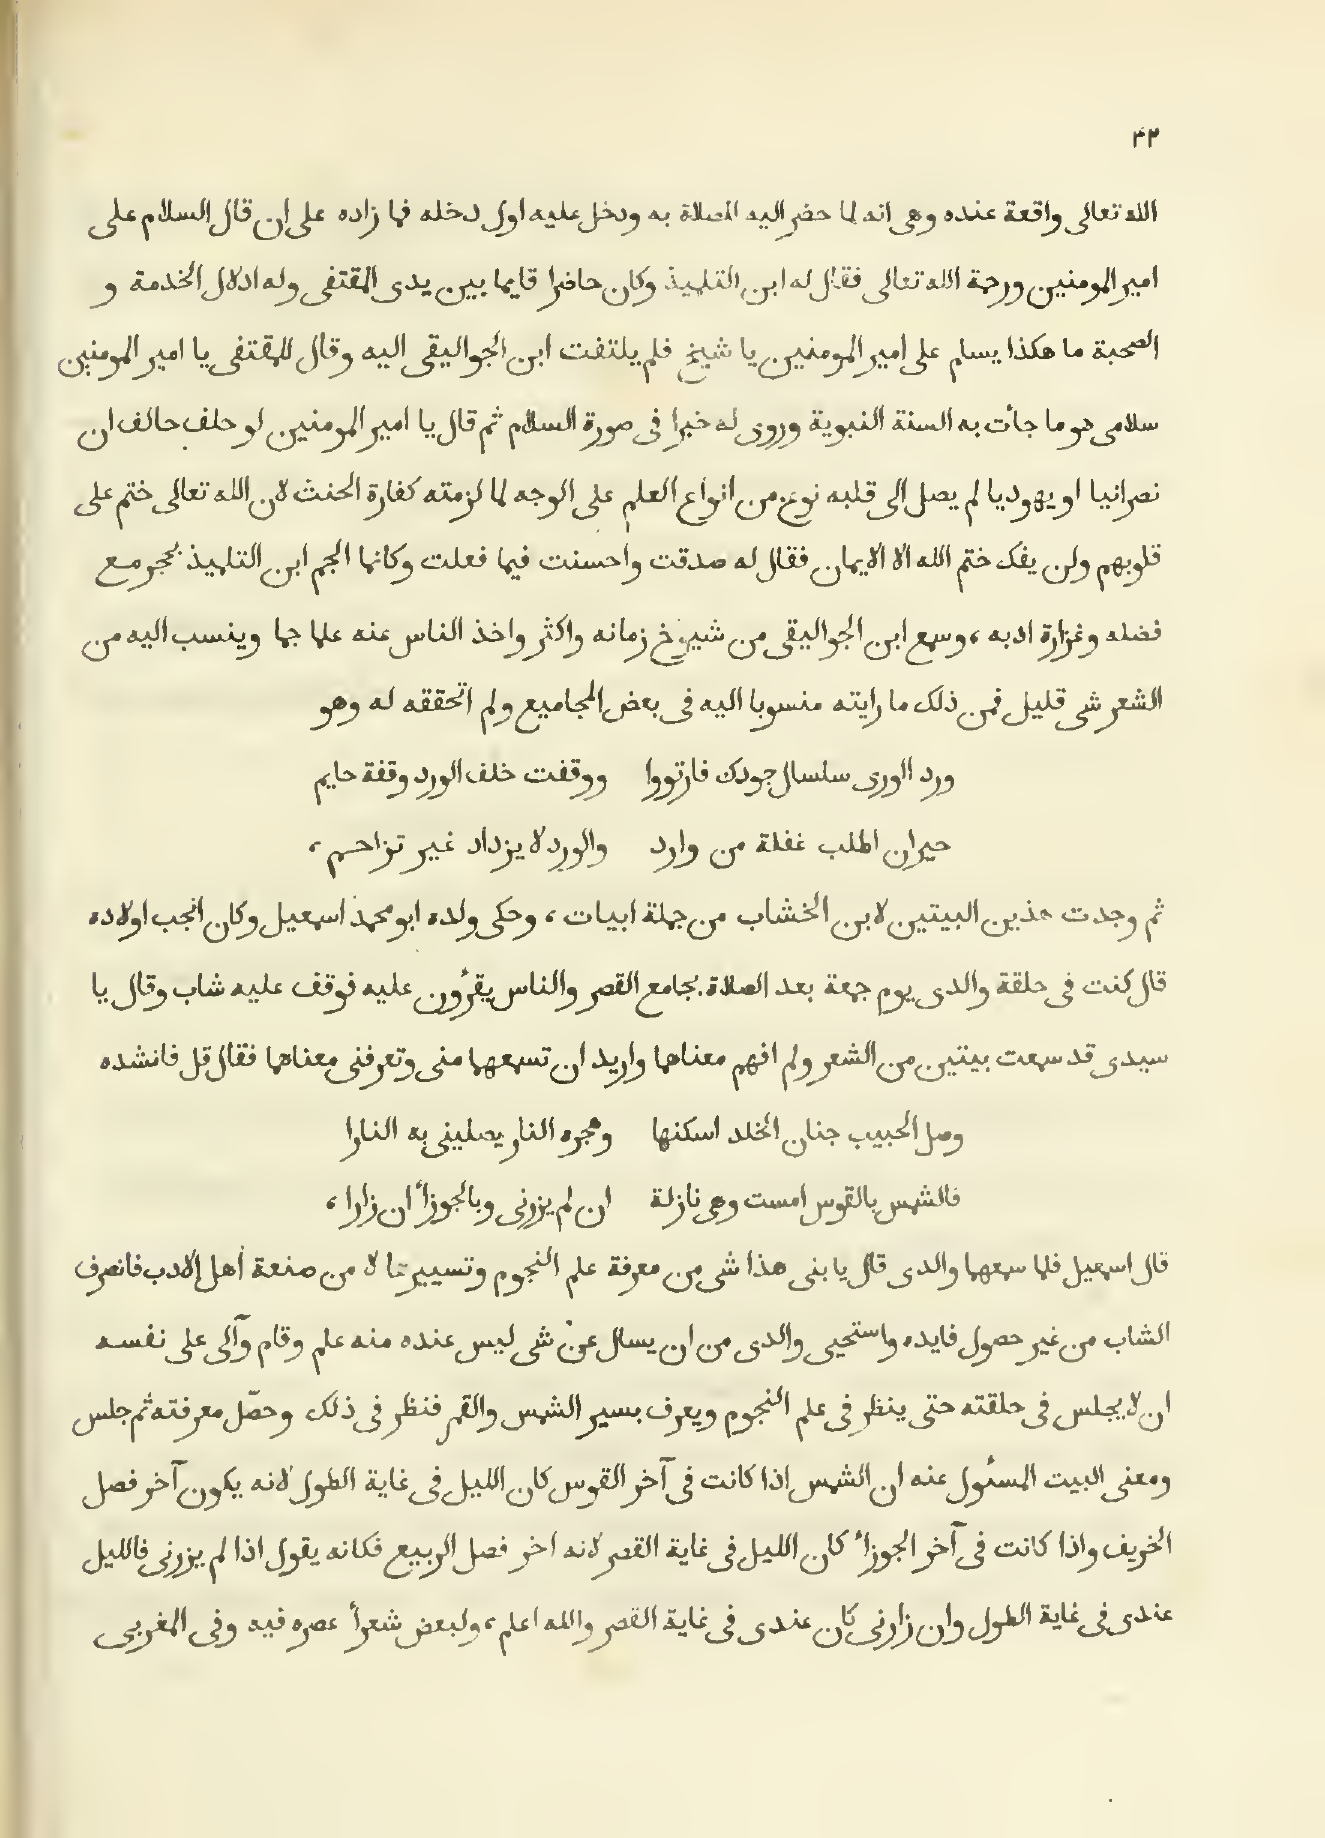 ٤٢
الله تعالى واقعة عنده وهى انه لما حضر اليه للصلاة به ودخل عليه اول دخله فما زاده على ان قال السلام على
امير المومنين ورحمة الله تعالى فقال له ابن التلميذ وكان حاضرا قايما بين يدى المقتفى وله ادلال الخدمة و
الصحبة ما هكذا يسلم على امير المومنين يا شيخ فلم يلتفت ابن الجواليقى اليه وقال للمقتفى يا امير المومنين
سلامى هو ما جأت به السنة النبوية وروى له خبرا فى صورة السلام ثم قال يا امير المومنين لو حلف حالف ان
نصرانيا او يهوديا لم يصل الى قلبه نوع من انواع العلم على الوجه لما لزمته كفارة الحنث لان الله تعالى ختم على
قلوبهم ولن يفك ختم الله الا الايمان فقال له صدقت واحسنت فيما فعلت وكانما الجم ابن التلميذ بحجر مع
فضله وغزارة ادبه ، وسمع ابن الجواليقى من شيوخ زمانه واكثر واخذ الناس عنه علما جما وينسب اليه من
الشعر شى قليل فمن ذلك ما رايته منسوبا اليه فى بعض المجاميع ولم اتحققه له وهو
ورد الورى سلسال جودك فارتووا ووقفت خلف الورد وقفة حايم
حيران اطلب غفلة من وارد والورد لا يزداد غير تزاحم ،
ثم وجدت هذين البيتين لابن الخشاب من جملة ابيات ، وحكى ولده ابو محمد اسمعيل وكان انجب اولاده
قال كنت فى حلقة والدى يوم جمعة بعد الصلاة بجامع القصر والناس يقرؤن عليه فوقف عليه شاب وقال يا
سيدى قد سمعت بيتين من الشعر ولم افهم معناهما واريد ان تسمعهما منى وتعرفنى معناهما فقال قل فانشده
وصل الحبيب جنان الخلد اسكنها وهجره النار يصلينى به النارا
فالشمس بالقوس امست وهى نازلة ان لم يزرنى وبالجوزأ ان زارا ،
قال اسمعيل فلما سمعهما والدى قال يا بنى هذا شى من معرفة علم النجوم وتسييرها لا من صنعة أهل الادب فانصرف
الشاب من غير حصول فايده واستحيى والدى من ان يسال عن شى ليس عنده منه علم وقام وآلى على نفسه
ان لا يجلس فى حلقته حتى ينظر فى علم النجوم ويعرف بسير الشمس والقمر فنظر فى ذلك وحصّل معرفته ثم جلس
ومعنى البيت المسئول عنه ان الشمس اذا كانت فى آخر القوس كان الليل فى غاية الطول لانه يكون آخر فصل
الخريف واذا كانت فى آخر الجوزأ كان الليل فى غاية القصر لانه اخر فصل الربيع فكانه يقول اذا لم يزرنى فالليل
عندى فى غاية الطول وان زارنى كان عندى فى غاية القصر والله اعلم ، ولبعض شعرأ عصره فيه وفى المغربى